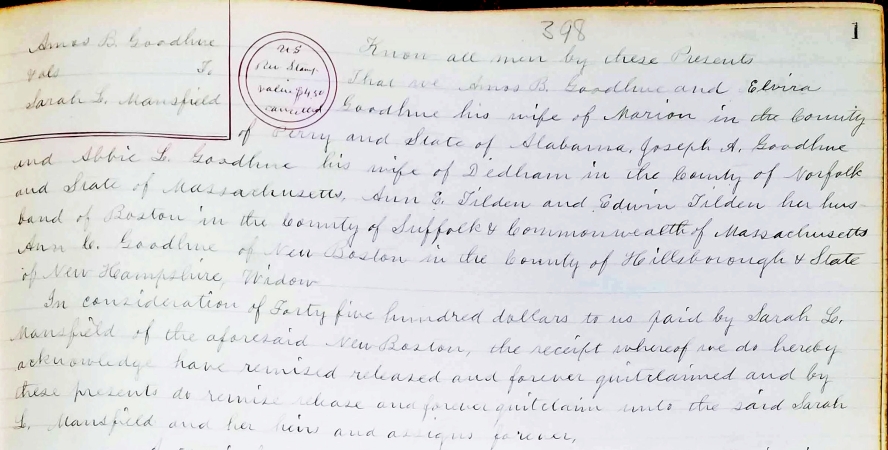 398
1
Amos B. Goodhue
&als To
Sarah L. Mansfield
US
Rev Stamp
value $4.50
cancelled
Know all men by these Presents
That we Amos B. Goodhue and Elvira
Goodhue his wife of Marion in the County
of Perry and State of Alabama, Joseph A. Goodhue
and Abbie L. Goodhue his wife of Dedham in the County of Norfolk
and State of Massachusetts, Ann E. Tilden and Edwin Tilden her hus-
band of Boston in the County of Suffolk & Commonwealth of Massachusetts
Ann C. Goodhue of New Boston in the County of Hillsborough & State
of New Hampshire, Widow
In consideration of Forty five hundred dollars to us paid by Sarah L.
Mansfield of the aforesaid New Boston, the receipt whereof we do hereby
acknowledge have remised released and forever quitclaimed and by
these presents do remise release and forever quitclaim unto the said Sarah
L. Mansfield and her heirs and assigns forever,